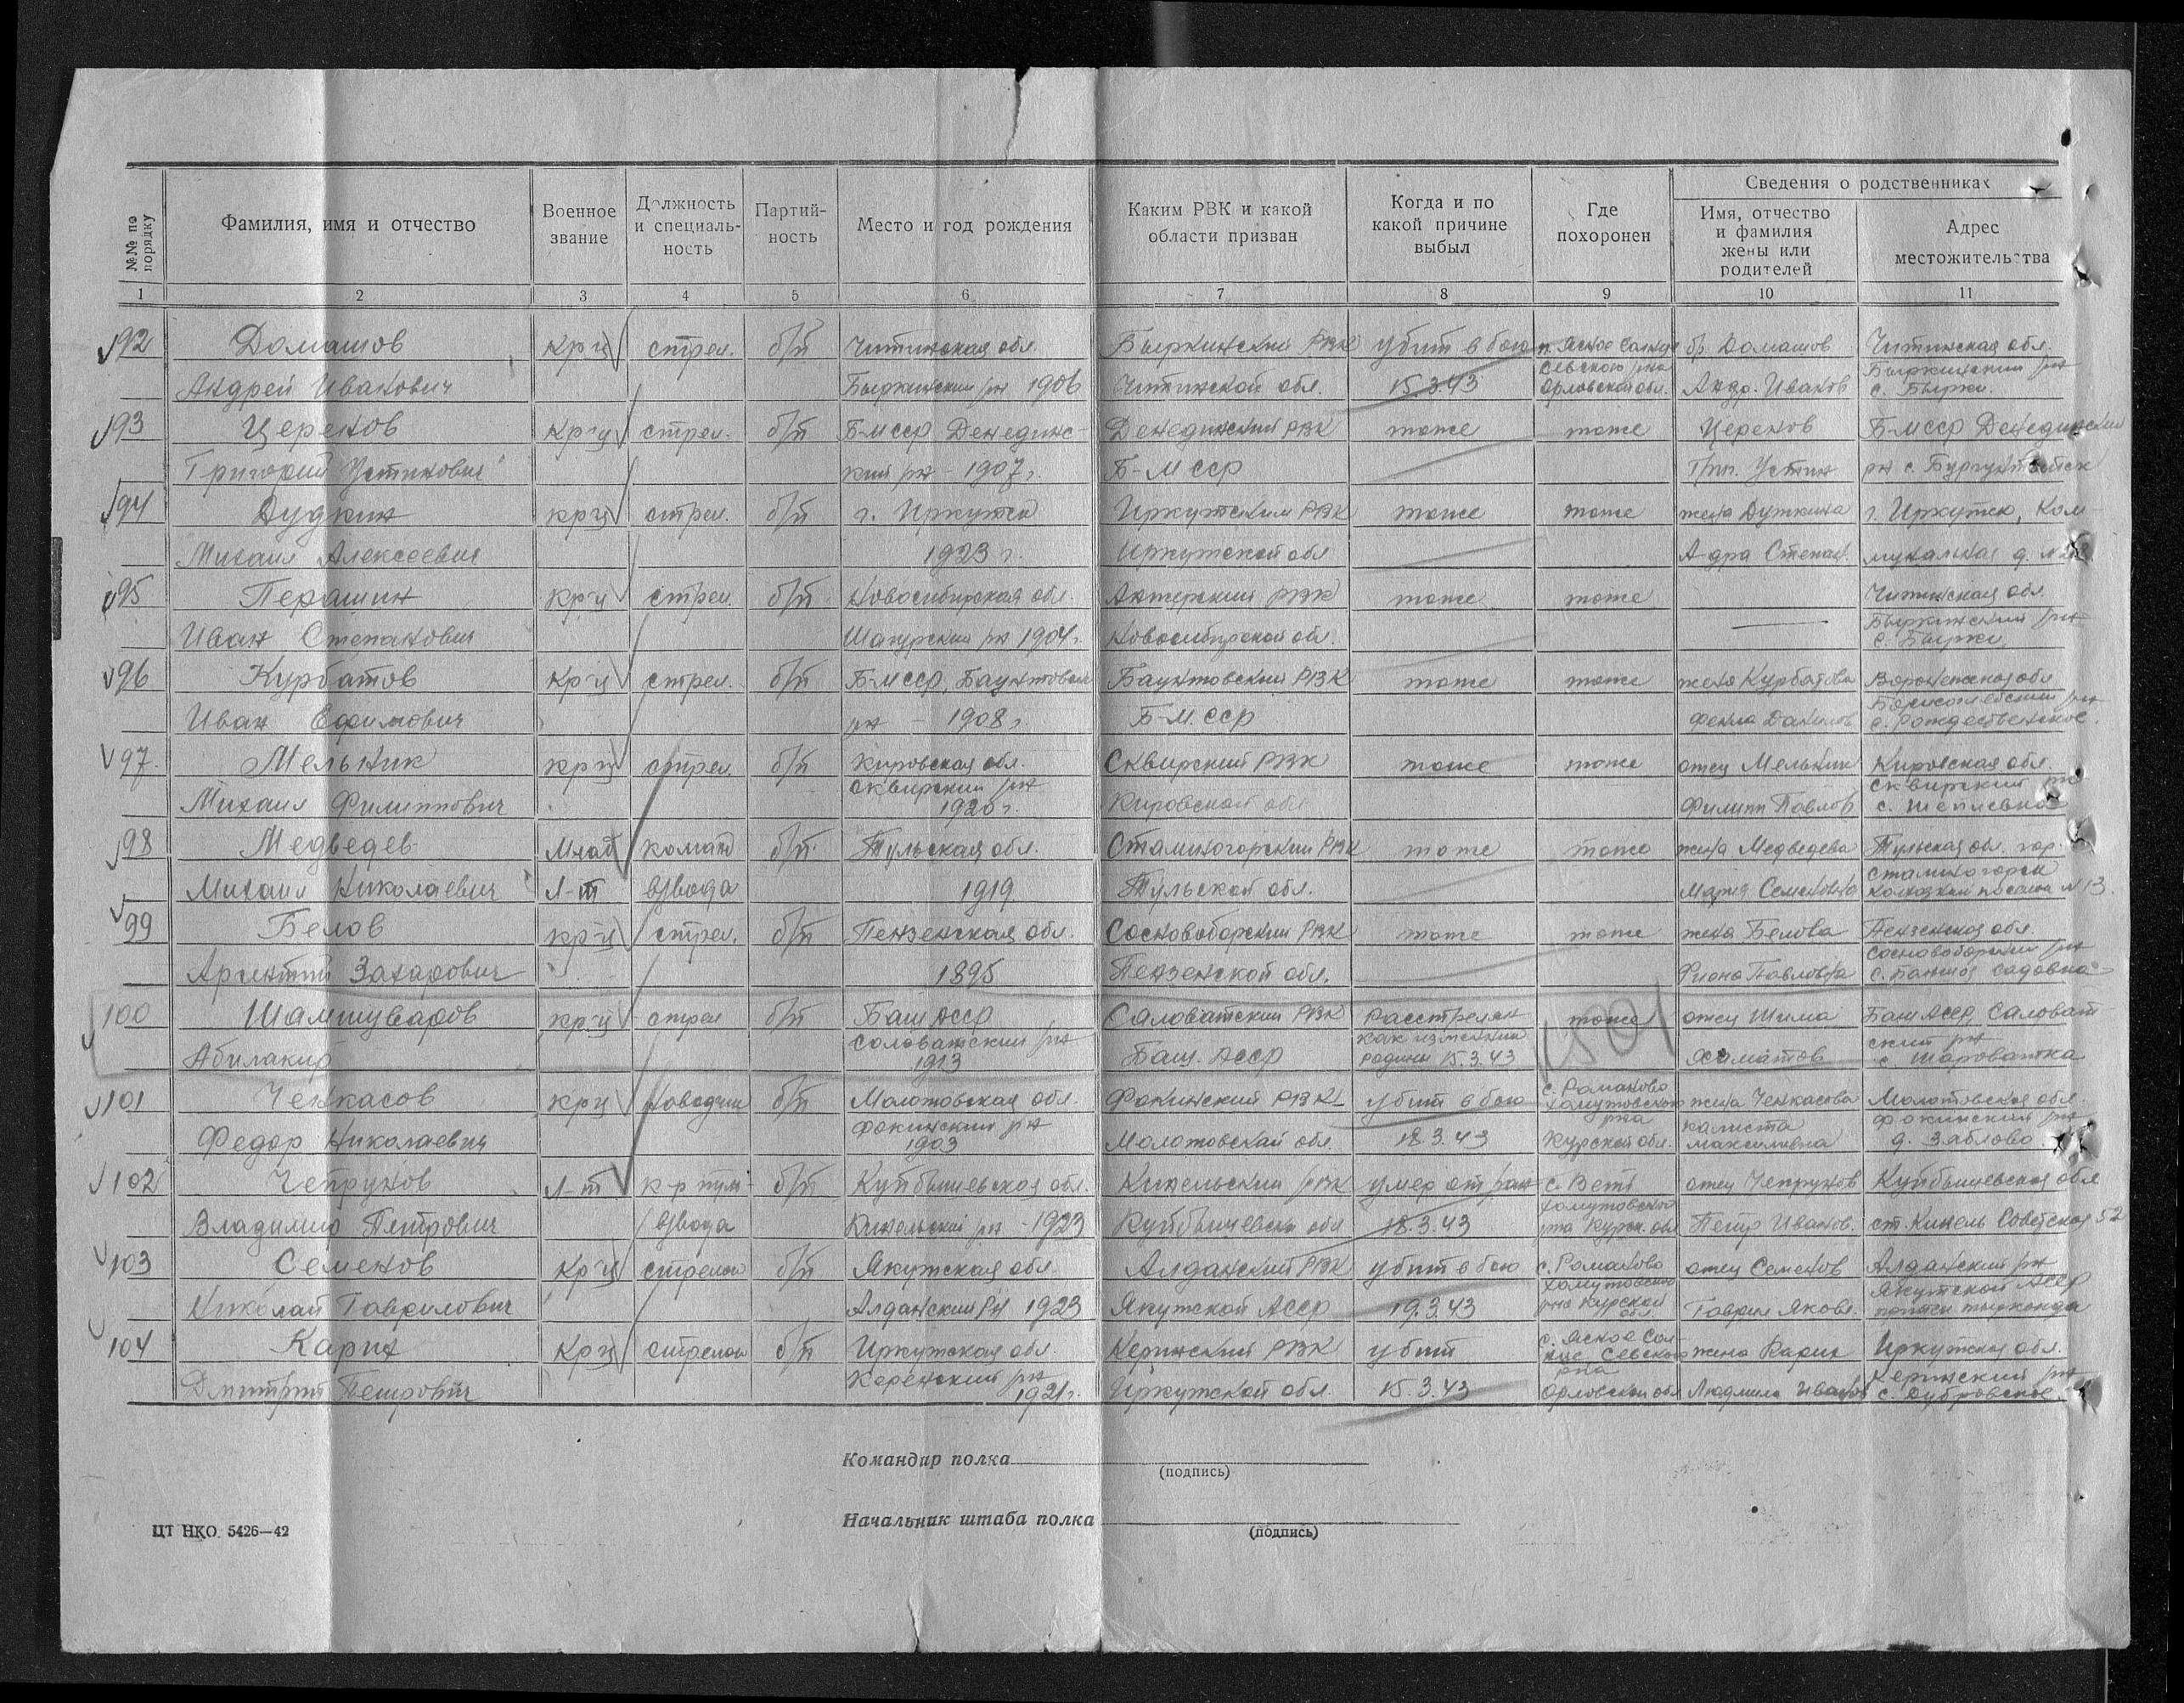 №№ по порядку
Фамилия, имя и отчество
Военное звание
Должность и специальность
Партийность
Место и год рождения
Каким РВК и какой области призван
Когда и по какой причине выбыл
Где похоронен
Сведения о родственниках
Имя, отчество и фамилия жены или родителей
Адрес местожительства
1 2 3 4 5 6 7 8 9 10 11
92 Домашов кр-ц стрел. б/п Читинская обл. Быркинский РВК убит в бою п. Ясное Солнце бр. Домашов Читинская обл.
Андрей Иванович Быркинский р-н 1906 Читинской обл. 15.3.43 Севского р-на Орловской обл. Андр. Иванов Быркинский р-н с. Бырки.
93 Церенов кр-ц стрел. б/п Б-М ССР Денедин- Денединский РВК тоже тоже Церенов Б-М ССР Денединский
Григорий Устинович ский р-н - 1907 г. Б-М ССР Устин р-н с.
94 Дудкин кр-ц стрел. б/п г. Иркутск Иркутским РВК тоже тоже жена Дуткина г. Иркутск, Ком-
Михаил Алексеевич 1923 г. Иркутской обл А-дра Степан. мунальная д. №
95 Перашин кр-ц стрел. б/п Новосибирская обл. РВК тоже тоже Читинская обл.
Иван Степанович р-н 1904 г. Новосибирской обл. Быркинский р-н с. Бырки.
96 Курбатов кр-ц стрел. б/п Б-М ССР, Баунтовский Баунтовский РВК тоже тоже жена Курбатова Воронежская обл
Иван Ефимович р-н - 1908 г. Б-М. ССР Фекла Данилов. р-н с. Рождественское.
97. Мельник кр-ц стрел. б/п Кировская обл. Сквирский РВК тоже тоже отец Мельник Кировская обл.
Михаил Филиппович Сквирский р-н 1920 г. Кировской обл Филипп Павлов. Сквирский р-н с.
98 Медведев Млад. команд б/п. Тульская обл. Сталиногорский РВК тоже тоже жена Медведева Тульская обл. гор.
Михаил Николаевич л-т взвода 1919 Тульской обл. Мария Семеновна Сталиногорск поселок № 13.
99 Белов кр-ц стрел. б/п Пензенская обл. Сосновоборский РВК тоже тоже жена Белова Пензенская обл.
Захарович 1895 Пензенской обл. Павловна Сосновоборский р-н с.
100 Шамшуваров кр-ц стрел б/п Баш АССР Саловатский РВК Расстрелян тоже отец Шима Баш АССР, Саловат-
Абилакир Саловатский р-н 1913 Баш. АССР как изменник родины 15.3.43 Хаматов ский р-н с. Шароватка
101 Ченкасов кр-ц наводчик б/п Молотовская обл. Фокинский РВК убит в бою с. Романово Хомутовского р-на жена Ченкасова Молотовская обл.
Федор Николаевич Фокинский р-н 1903 Молотовской обл. 18.3.43 Курской обл. Калиста Максимовна Фокинский р-н д. Заблово.
102 Чепрунов л-т к-р пул- б/п Куйбышевская обл. Кинельский РВК умер от ран с. Веть отец Чепрунов Куйбышевская обл
Владимир Петрович взвода Кинельский р-н - 1923 Куйбышевск. обл 18.3.43 Хомутовского р-на Курск. обл Петр Иванов. ст. Кинель Советская 52
103 Семенов кр-ц стрелок б/п Якутская обл. Алданский РВК убит в бою с. Романово отец Семенов Алданский р-н
Николай Гаврилович Алданский р-н 1923 Якутской АССР 19.3.43 Хомутовского р-на Курской обл Гаврил Яковл. Якутской АССР
104 Карих кр-ц стрелок б/п Иркутская обл. Керинский РВК убит с. Ясное Сол- жена Карих Иркутская обл.
Дмитрий Петрович Керенский р-н 1921 г. Иркутской обл. 15.3.43 нце Севского р-на Орловской обл Людмила Иванов. Керинский р-н с. Дубровское.
Командир полка
(подпись)
Начальник штаба полка
(подпись)
ЦТ НКО. 5426—42